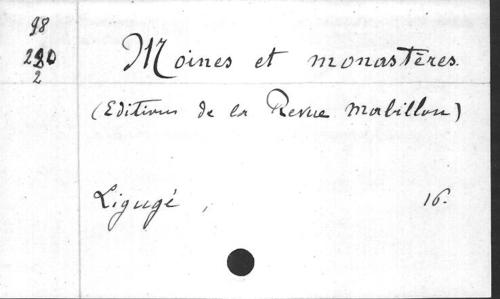 98
280
2
Moines et monastères.
(Editions de la Revue Mabillon)
Ligugé, 16.